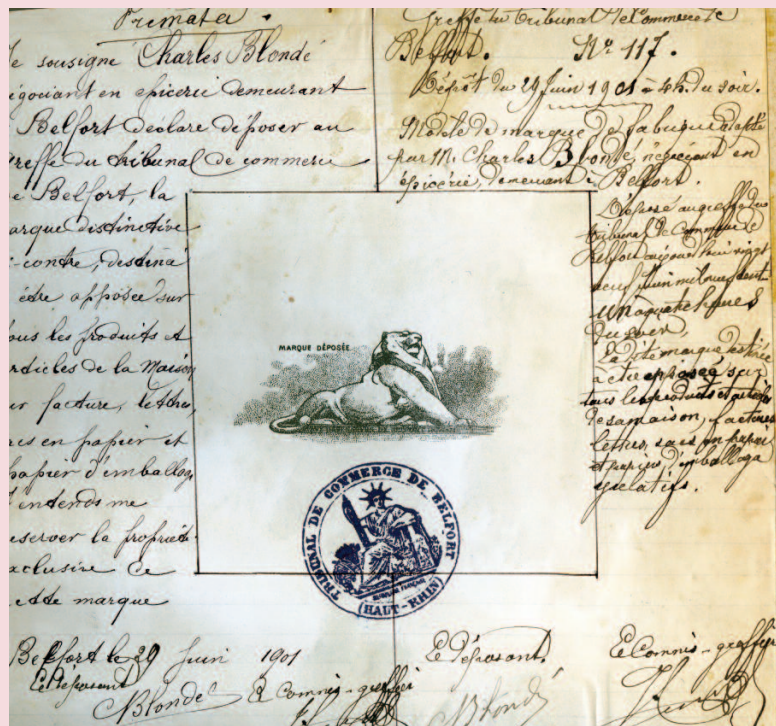 Primata.
Je soussigné Charles Blondé
négociant en épicerie demeurant
Belfort déclare déposer au
greffe du tribunal de commerce
de Belfort, la
marque distinctive
ci-contre, destinée
être apposée sur
tous les produits et
articles de la Maison
sur facture, lettres,
sacs en papier et
papier d'emballage
J'entends me
réserver la propriété
exclusive de
cette marque
Belfort le 29 Juin 1901
Le Déposant Le Commis-greffier
Blondé
Greffe du Tribunal de Commerce de
Belfort. No 117.
Dépôt du 29 Juin 1901 à 4h. du soir.
Modèle de marque de fabrique adopté
par M. Charles Blondé, négociant en
épicerie, demeurant à Belfort.
Déposé au greffe du
tribunal de Commerce de
Belfort aujourd'hui vingt
neuf Juin mil neuf cent
un à quatre heures
du soir,
La dite marque destinée
à être apposée sur
tous les produits et articles
de sa maison, factures
lettres, sacs en papier
et papier d'emballage
Le Déposant Le Commis-greffier
Blondé
MARQUE DÉPOSÉE
TRIBUNAL DE COMMERCE DE BELFORT
(HAUT-RHIN)